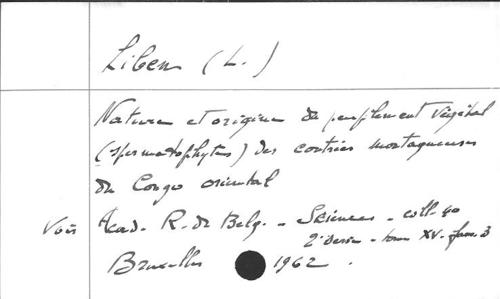 Liben (L.)
Nature et origine du peuplement végétal
(spermatophytes) des contrées montagneuses
du Congo oriental
Voir Acad. R. de Belg. - Sciences - coll. 40
2e série - tome XV - fasc. 3
Bruxelles 1962.